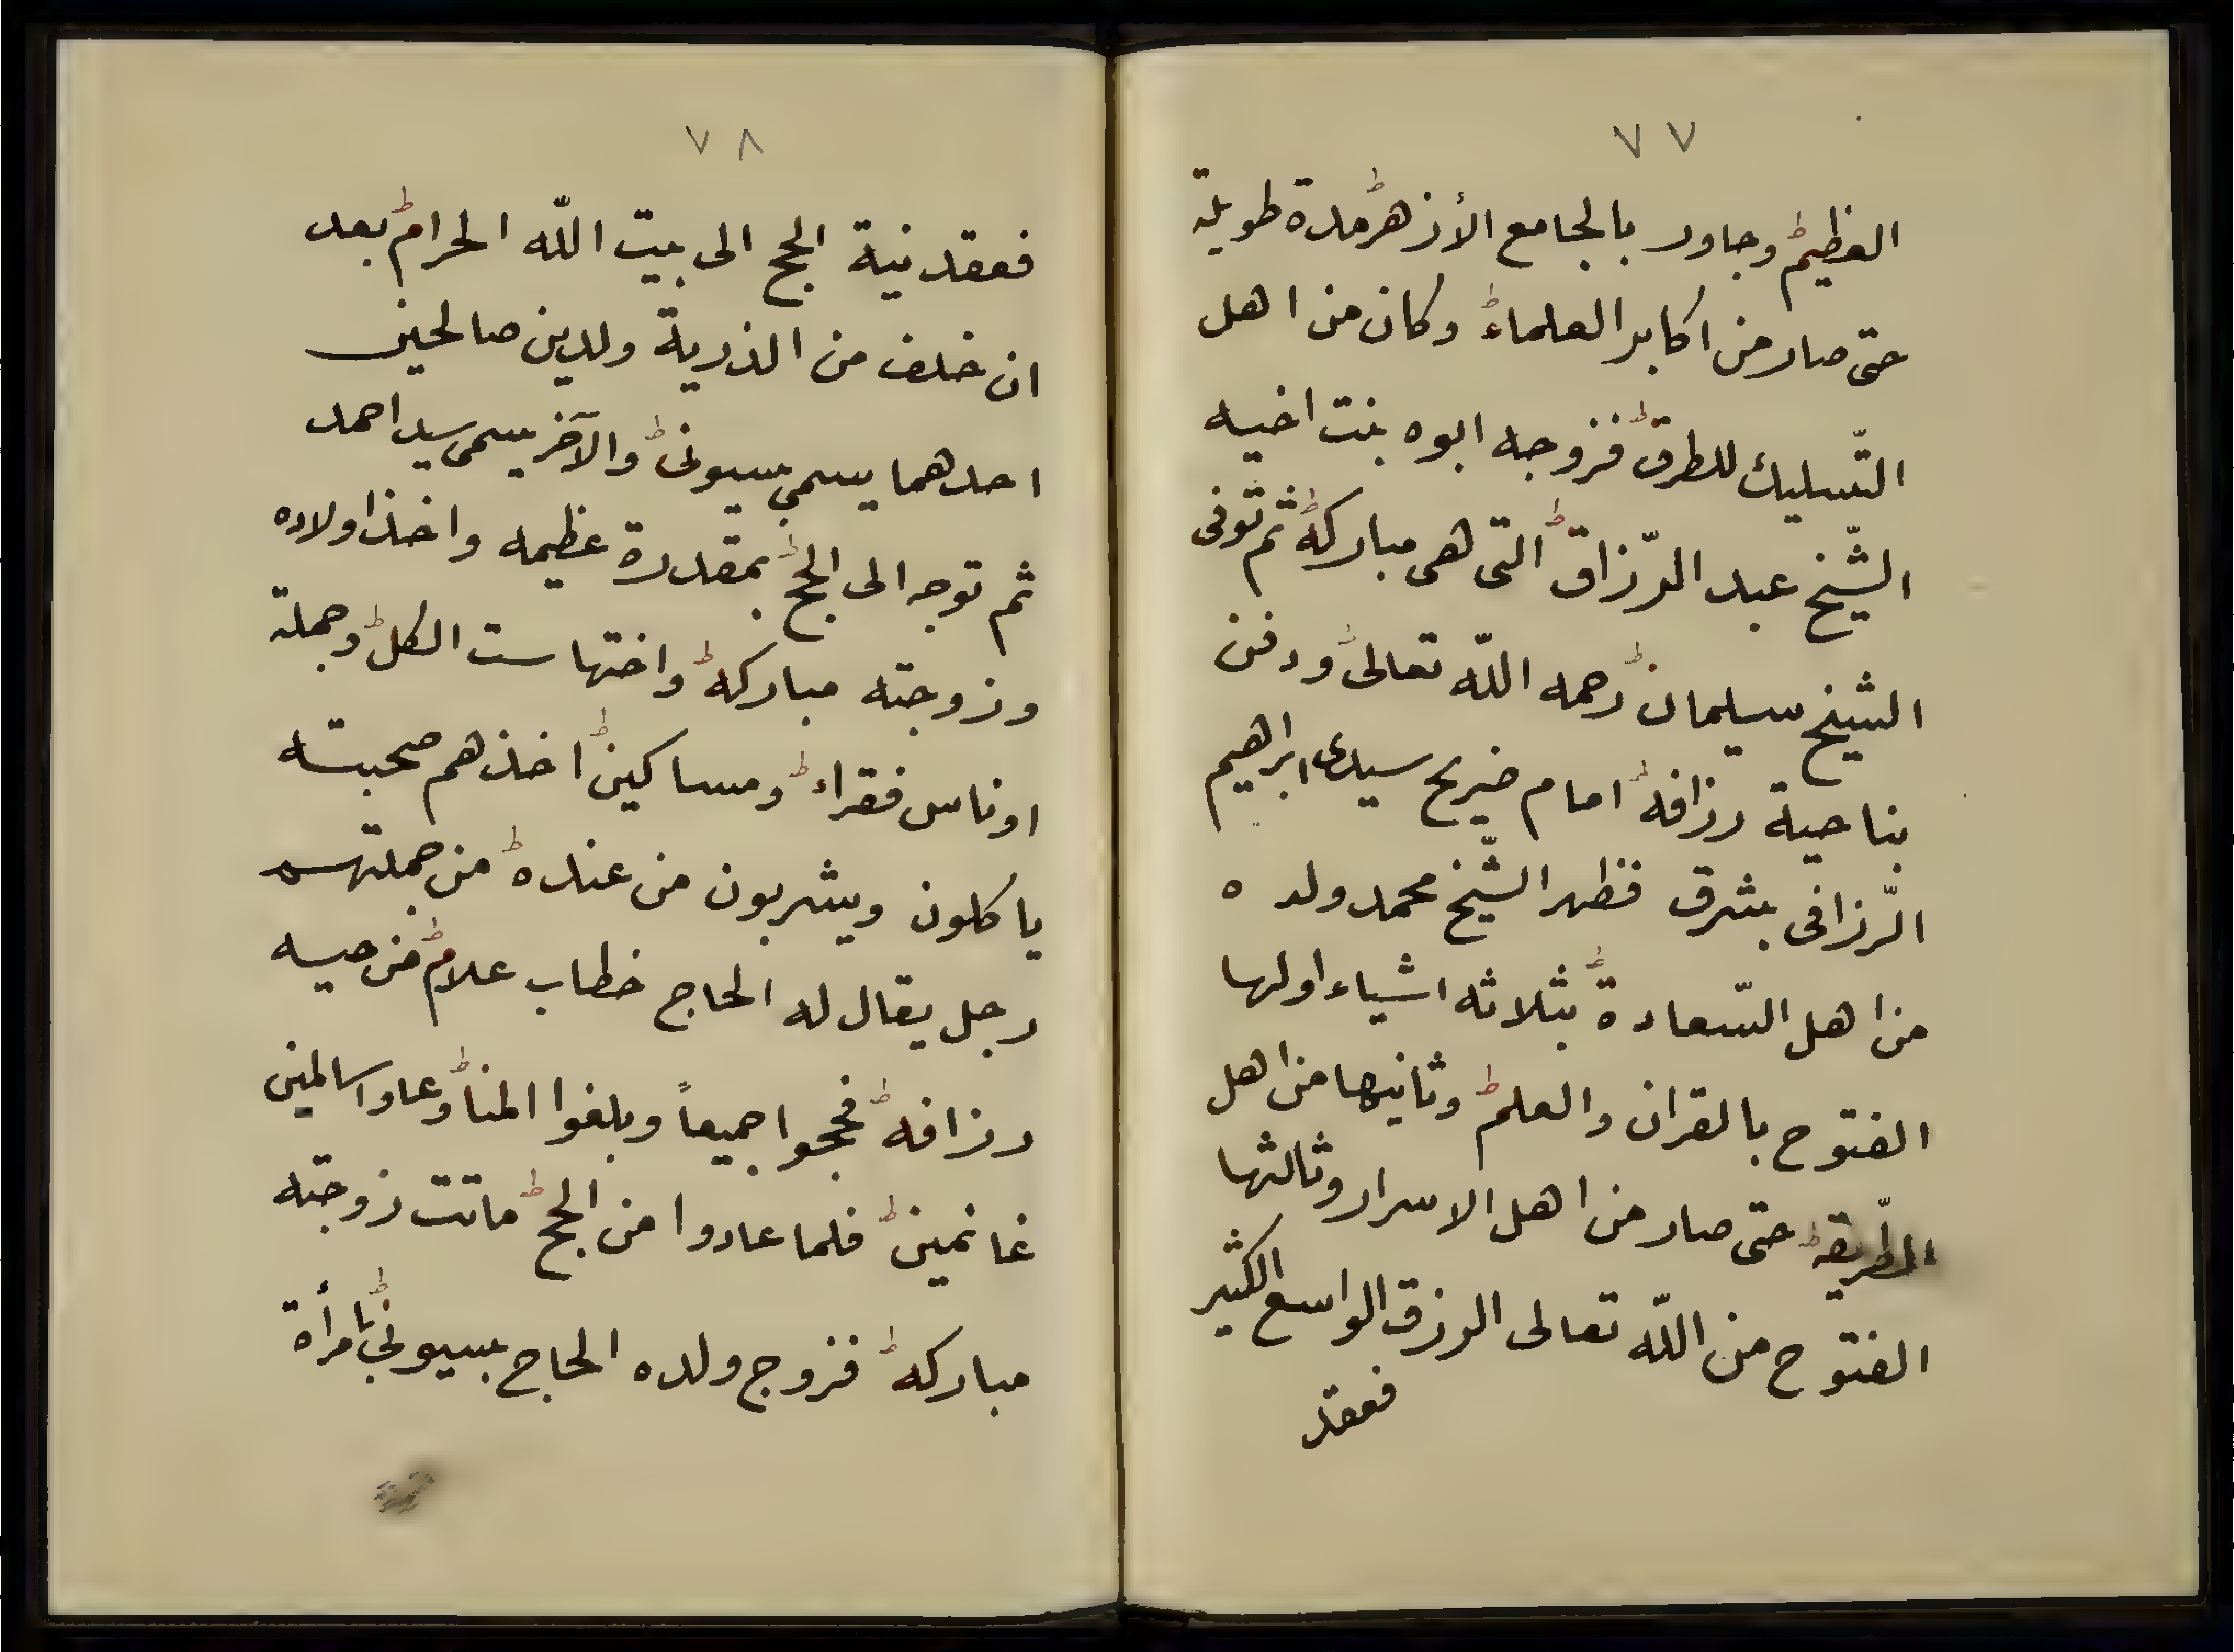 ٧٧
العظيم وجاور بالجامع الأزهر مدة طويلة
حتى صار من اكابر العلماء وكان من اهل
التّسليك للطرق فزوجه ابوه بنت اخيه
الشّيخ عبد الرّزاق التى هى مباركة ثم توفى
الشيخ سليمان رحمه اللّه تعالى ودفن
بناحية رزافه امام ضريح سيدى ابراهيم
الرّزافى بشرق فظهر الشّيخ محمد ولده
من اهل السّعادة بثلاثه اشياء اولها
الفتوح بالقران والعلم وثانيها من اهل
الطّريقة حتى صار من اهل الاسرار وثالثها
الفتوح من اللّه تعالى الرزق الواسع الكثير
فعقد
٧٨
فعقد نية الحج الى بيت اللّه الحرام بعد
ان خلف من الذرية ولدين صالحين
احدهما يسمى بسيونى والآخر يسمى سيد احمد
ثم توجه الى الحج بمقدرة عظيمه واخذ اولاده
وزوجته مباركة واختها ست الكل وجملة
اوناس فقراء ومساكين اخذهم صحبته
ياكلون ويشربون من عنده من جملتهم
رجل يقال له الحاج خطاب علام من حيه
رزافه فحجوا جميعاً وبلغوا المنا وعاوا سالمين
غانمين فلما عادوا من الحج ماتت زوجته
مباركه فزوج ولده الحاج بسيونى بامرأة